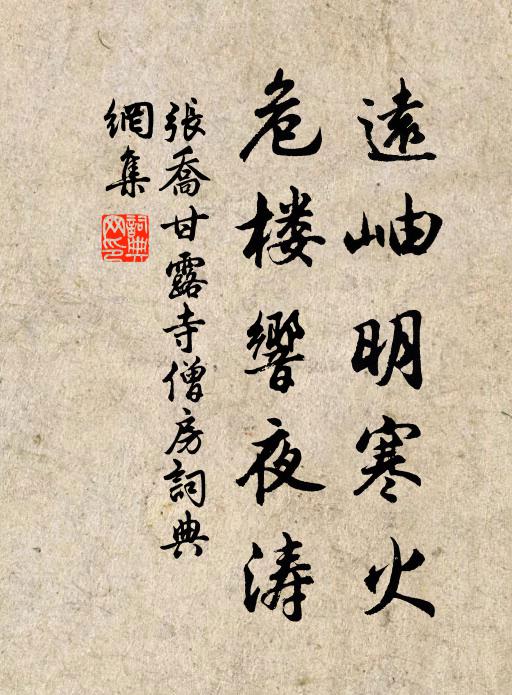 遠岫明寒火
危楼響夜涛
張喬甘露寺僧房詞典
網集
詞典网印